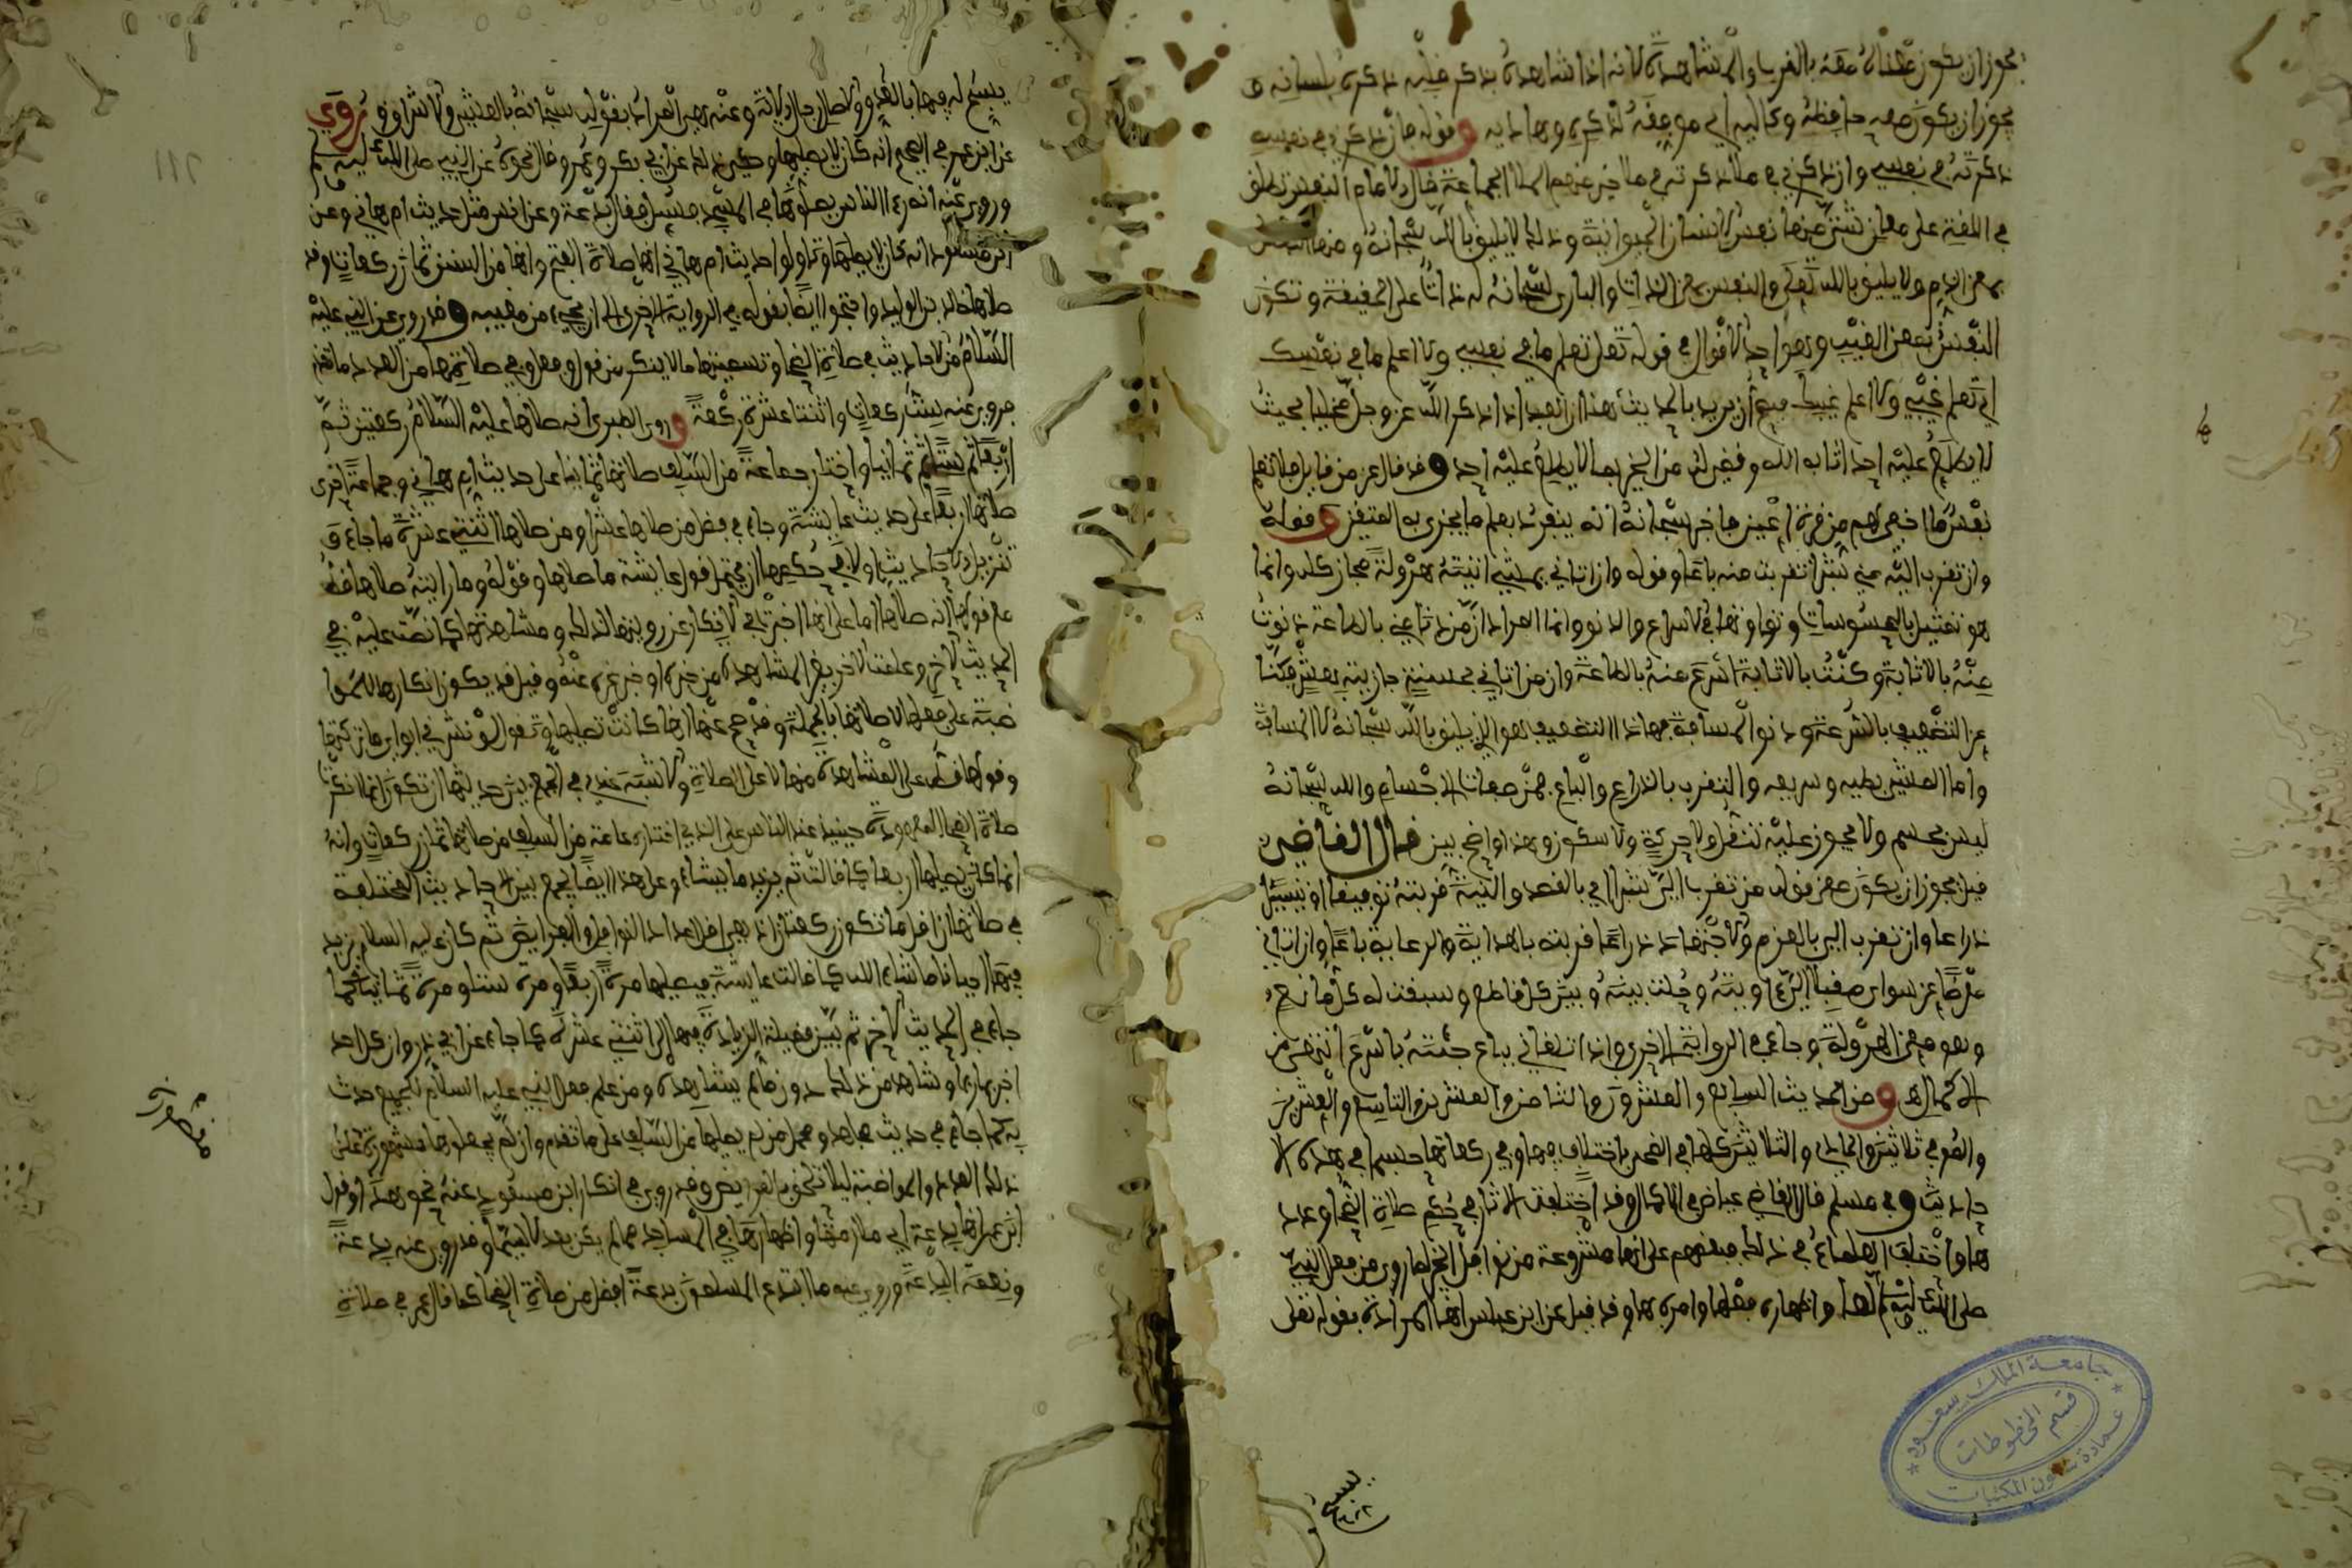 يجوز ان يكون معناه معه بالقرب والمشاهدة لانه اذا شاهده بذكر قلبه ذكره بلسانه و
يجوز ان يكون معه حافظه وكاليه اي موفقه لذكري وهاديه وقوله فان ذكرني في نفسه
ذكرته في نفسي وان ذكرني في ملأ ذكرته في ملأ خير منهم الملأ الجماعة قال الامام النفس تطلق
في اللغة على معان شتى منها نفس الانسان الحيوانية وذلك لا يليق بالله سبحانه ومنها النفس
بمعنى الدم ولا يليق بالله تعلى والنفس بمعنى الذات والباري سبحانه له ذاتا على الحقيقة وتكون
النفس بمعنى الغيب وهو احد الاقوال في قوله تعلى تعلم ما في نفسي ولا اعلم ما في نفسك
اي تعلم غيبي ولا اعلم غيبك فيصح ان يريد بالحديث هذا ان العبد اذا ذكر الله عز وجل خاليا بحيث
لا يطلع عليه احد اثابه الله وقضى له من الخير بما لا يطلع عليه احد وقد قال عز من قايل فلا تعلم
نفس ما اخفي لهم من قرة اعين فاخبر سبحانه انه ينفرد بعلم ما يجزي به المتقين وقوله
وان تقرب اليه مني شبرا تقربت منه باعا وقوله وان اتاني يمشي اتيته هرولة مجاز كله وانما
هو تمثيل بالمحسوسات وتفاوتها في الاسراع والدنو وانما المراد ان من دنا مني بالطاعة دنوت
منه بالاثابة وكنت بالاثابة اسرع منه بالطاعة وان من اتاني بحسنة جازيته بعشر فكنا
عن التضعيف بالسرعة ودنو المسافة فهاذا التضعيف هو الذي يليق بالله سبحانه لا المسافة
واما المشي بطيه وسريعه والتقرب بالذراع والباع فمن صفات الاجسام والله سبحانه
ليس بجسم ولا يجوز عليه تنقل ولا حركة ولا سكون وهذا واضح بين قال القاضي
قيل يجوز ان يكون معنى قوله من تقرب الي شبرا اي بالقصد والنية قربته توفيقا او تيسيرا
ذراعا وان تقرب الي بالعزم والاجتهاد ذراعا قربته بالهداية والرعاية باعا وان اتاني
معرضا عن سواي مقبلا الي اويته وحلت بينه وبين كل قاطع وسبقت له كل مانح
وهو معنى الهرولة وجاء في الرواية الاخرى واذا تلقاني بباع جئته باسرع انتهى من
الاكمال ومن الحديث السابع والعشرون والثامن والعشرين والتاسع والعشرين
والمو في ثلاثين والحادي والثلاثين كلها في الضحى باختلاف فيها وفي ركعاتها حسبما في هذه الا
حاديث وفي مسلم قال القاضي عياض في الاكمال وقد اختلفت الاثار في حكم صلاة الضحى وعدد
ها واختلف العلماء في ذلك فبعضهم على انها مشروعة من نوافل الخير لما روي من فعل النبي
صلى الله عليه وسلم لها واظهاره فعلها وامره بها وقد قيل عن ابن عباس انها المرادة بقوله تعلى
يسبح
يسبح له فيها بالغدو والاصال رجال الاية وعنه هي المراد بقوله سبحانه بالعشي والاشراق وروي
عن ابن عمر في الصحيح انه كان لا يصليها وحكي ذلك عن ابي بكر وعمر وقال نحوه عن النبي صلى الله عليه وسلم
وروي عنه انه رءا الناس يصلونها في المسجد فسئل فقال بدعة وعن انس مثل حديث ام هاني وعن
ابن مسعود انه كان لا يصليها وتأولوا حديث ام هاني انها صلاة الفتح وانها من السنن ثمان ركعات وقد
صلاها خالد بن الوليد واحتجوا ايضا بقوله في الرواية الاخرى الا ان يجيء من مغيبه وقد روي عن النبي عليه
السلام من الاحاديث في صلاة الضحى وتسميتها ما لا ينكر من قول وفعل وفي صلاتها من العدد ما تقدم
فروي عنه ست ركعات واثنتا عشرة ركعة وروى الطبري انه صلاها عليه السلام ركعتين ثم
اربعا ثم ستا ثم ثمانيا واختار جماعة من السلف صلاتها ثمانيا على حديث ام هاني وجماعة اخرى
صلاتها اربعا على حديث عايشة وجاء في فضل من صلاها عشرا ومن صلاها اثنتي عشرة ما جاء و
تنزيل الاحاديث اولا في حكمها ان يحتمل قول عايشة ما صلاها وقوله وما رايته صلاها قط
مع قولها انه صلاها اما على انها اخبرت في الانكار عن رويتها لذلك ومشاهدتها كما نصت عليه في
الحديث الاخر وعلمت الاخر بغير المشاهدة من خبره او خبر غيره عنه وقيل قد يكون انكارها للموا
ضبة على فعلها لا صلاتها بالجملة وقد صح عنها انها كانت تصليها وتقول لو نشر لي ابواي ما تركتها
وقولها قط على المشاهدة منها لا على الصلاة والاشبه عندي في الجمع بين حديثها ان تكون انما انكرت
صلاة الضحى المعهودة حينيذ عند الناس على الذي اختاره جماعة من السلف من صلاتها ثمان ركعات وانه
انما كان يصليها اربعا كما قالت ثم يزيد ما يشاء وعلى هذا ايضا يجمع بين الاحاديث المختلفة
في صلاتها ان اقل ما تكون ركعتان اذ هي اقل اعداد النوافل والفرايض ثم كان عليه السلام يزيد
فيها احيانا ما شاء الله كما قالت عايشة فيصليها مرة اربعا ومرة ستا ومرة ثمانيا كما
جاء في الحديث الاخر ثم بين فضيلة الزيادة فيها الى اثنتي عشرة كما جاء عن ابي ذر وان كل احد
اخبر بما راى وشاهد من ذلك دون ما لم يشاهده ومن علم فعل النبي عليه السلام لجميع حدث
به كما جاء في حديث مجاهد ومحمل من لم يصلها من السلف على ما تقدم وان لم يصلوها مشهورة على
ذلك العدد والمواضبة ليلا تلحق بالفرايض وقد روي في انكار ابن مسعود عنه نحو هذا وقول
ابن عمر انها بدعة اي ملازمتها واظهارها في المساجد مما لم يكن بعد لا سيما وقد روي عنه بدعة
ونعمة البدعة وروي عنه ما ابتدع المسلمون بدعة افضل من صلاة الضحى كما قال عمر في صلاة
جامعة الملك سعود
قسم المخطوطات
عمادة شؤون المكتبات